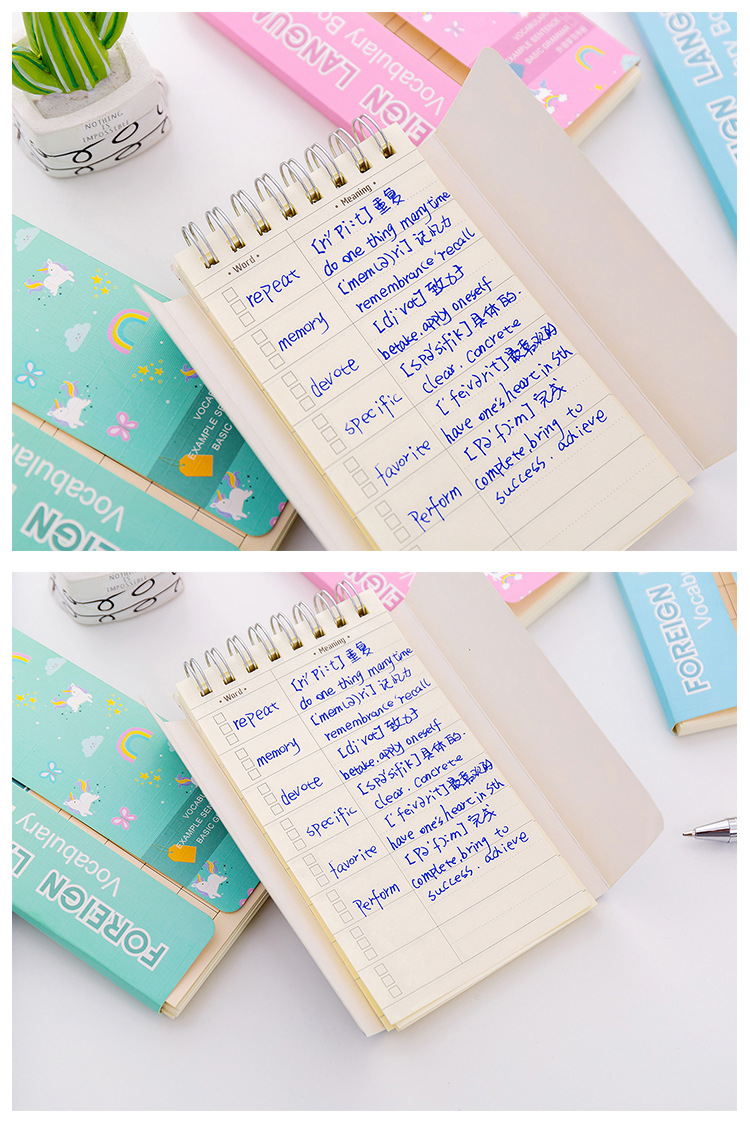 NOTHING
IS
IMPOSSIBLE
FOREIGN LANGUA
Vocabulary Bo
VOCABULARY
EXAMPLE SENTENCE
BASIC GRAMMAR
FOREIGN LANG
Vocabulary Bo
· Word ·
· Meaning ·
repeat
[ri'Pi:t] 重复
do one thing many time
memory
['mem(ə)ri] 记忆力
remembrance recall
devote
[di'vot] 致力于
betake.apply oneself
specific
[spə'sifik] 具体的.
clear. concrete
favorite
['feivərit] 最喜欢的
have one's heart in sth
Perform
[pə'fɔ:m] 完成
complete.bring to
success. achieve
VOCA
EXAMPLE SEN
BASIC
FOREIGN
Vocabulary
NOTHING
IS
IMPOSSIBLE
EIGN
FOREIGN
Vocab
· Word ·
· Meaning ·
repeat
[ri'Pi:t] 重复
do one thing many time
memory
['mem(ə)ri] 记忆力
remembrance recall
devote
[di'vot] 致力于
betake.apply oneself
specific
[spə'sifik] 具体的.
clear. concrete
favorite
['feivərit] 最喜欢的
have one's heart in sth
Perform
[pə'fɔ:m] 完成
complete.bring to
success. achieve
VOCABUL
EXAMPLE SENTE
BASIC G
FOREIGN LA
Vocabulary